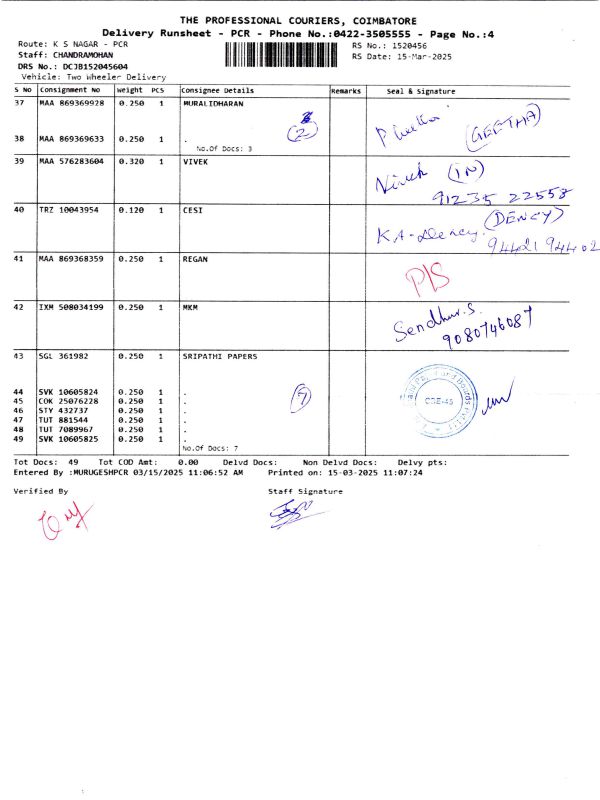 THE PROFESSIONAL COURIERS, COIMBATORE
Delivery Runsheet - PCR - Phone No.:0422-3505555 - Page No.:4
Route: K S NAGAR - PCR RS No.: 1520456
Staff: CHANDRAMOHAN RS Date: 15-Mar-2025
DRS No.: DCJB152045604
Vehicle: Two Wheeler Delivery
S No Consignment No Weight PCS Consignee Details Remarks Seal & Signature
37 MAA 869369928 0.250 1 MURALIDHARAN
(2) (GEETHA)
38 MAA 869369633 0.250 1 .
No.Of Docs: 3
39 MAA 576283604 0.320 1 VIVEK
Vivek (IN)
91235 22558
40 TRZ 10043954 0.120 1 CESI
(DENCY)
KA-Dency. 94421 94402
41 MAA 869368359 0.250 1 REGAN
P/S
42 IXM 508034199 0.250 1 MKM
Sendhur.S.
9080746087
43 SGL 361982 0.250 1 SRIPATHI PAPERS
44 SVK 10605824 0.250 1 . (7)
45 COK 25076228 0.250 1 . CBE-45
46 STY 432737 0.250 1 .
47 TUT 881544 0.250 1 .
48 TUT 7089967 0.250 1 .
49 SVK 10605825 0.250 1 .
No.Of Docs: 7
Tot Docs: 49 Tot COD Amt: 0.00 Delvd Docs: Non Delvd Docs: Delvy pts:
Entered By :MURUGESHPCR 03/15/2025 11:06:52 AM Printed on: 15-03-2025 11:07:24
Verified By Staff Signature